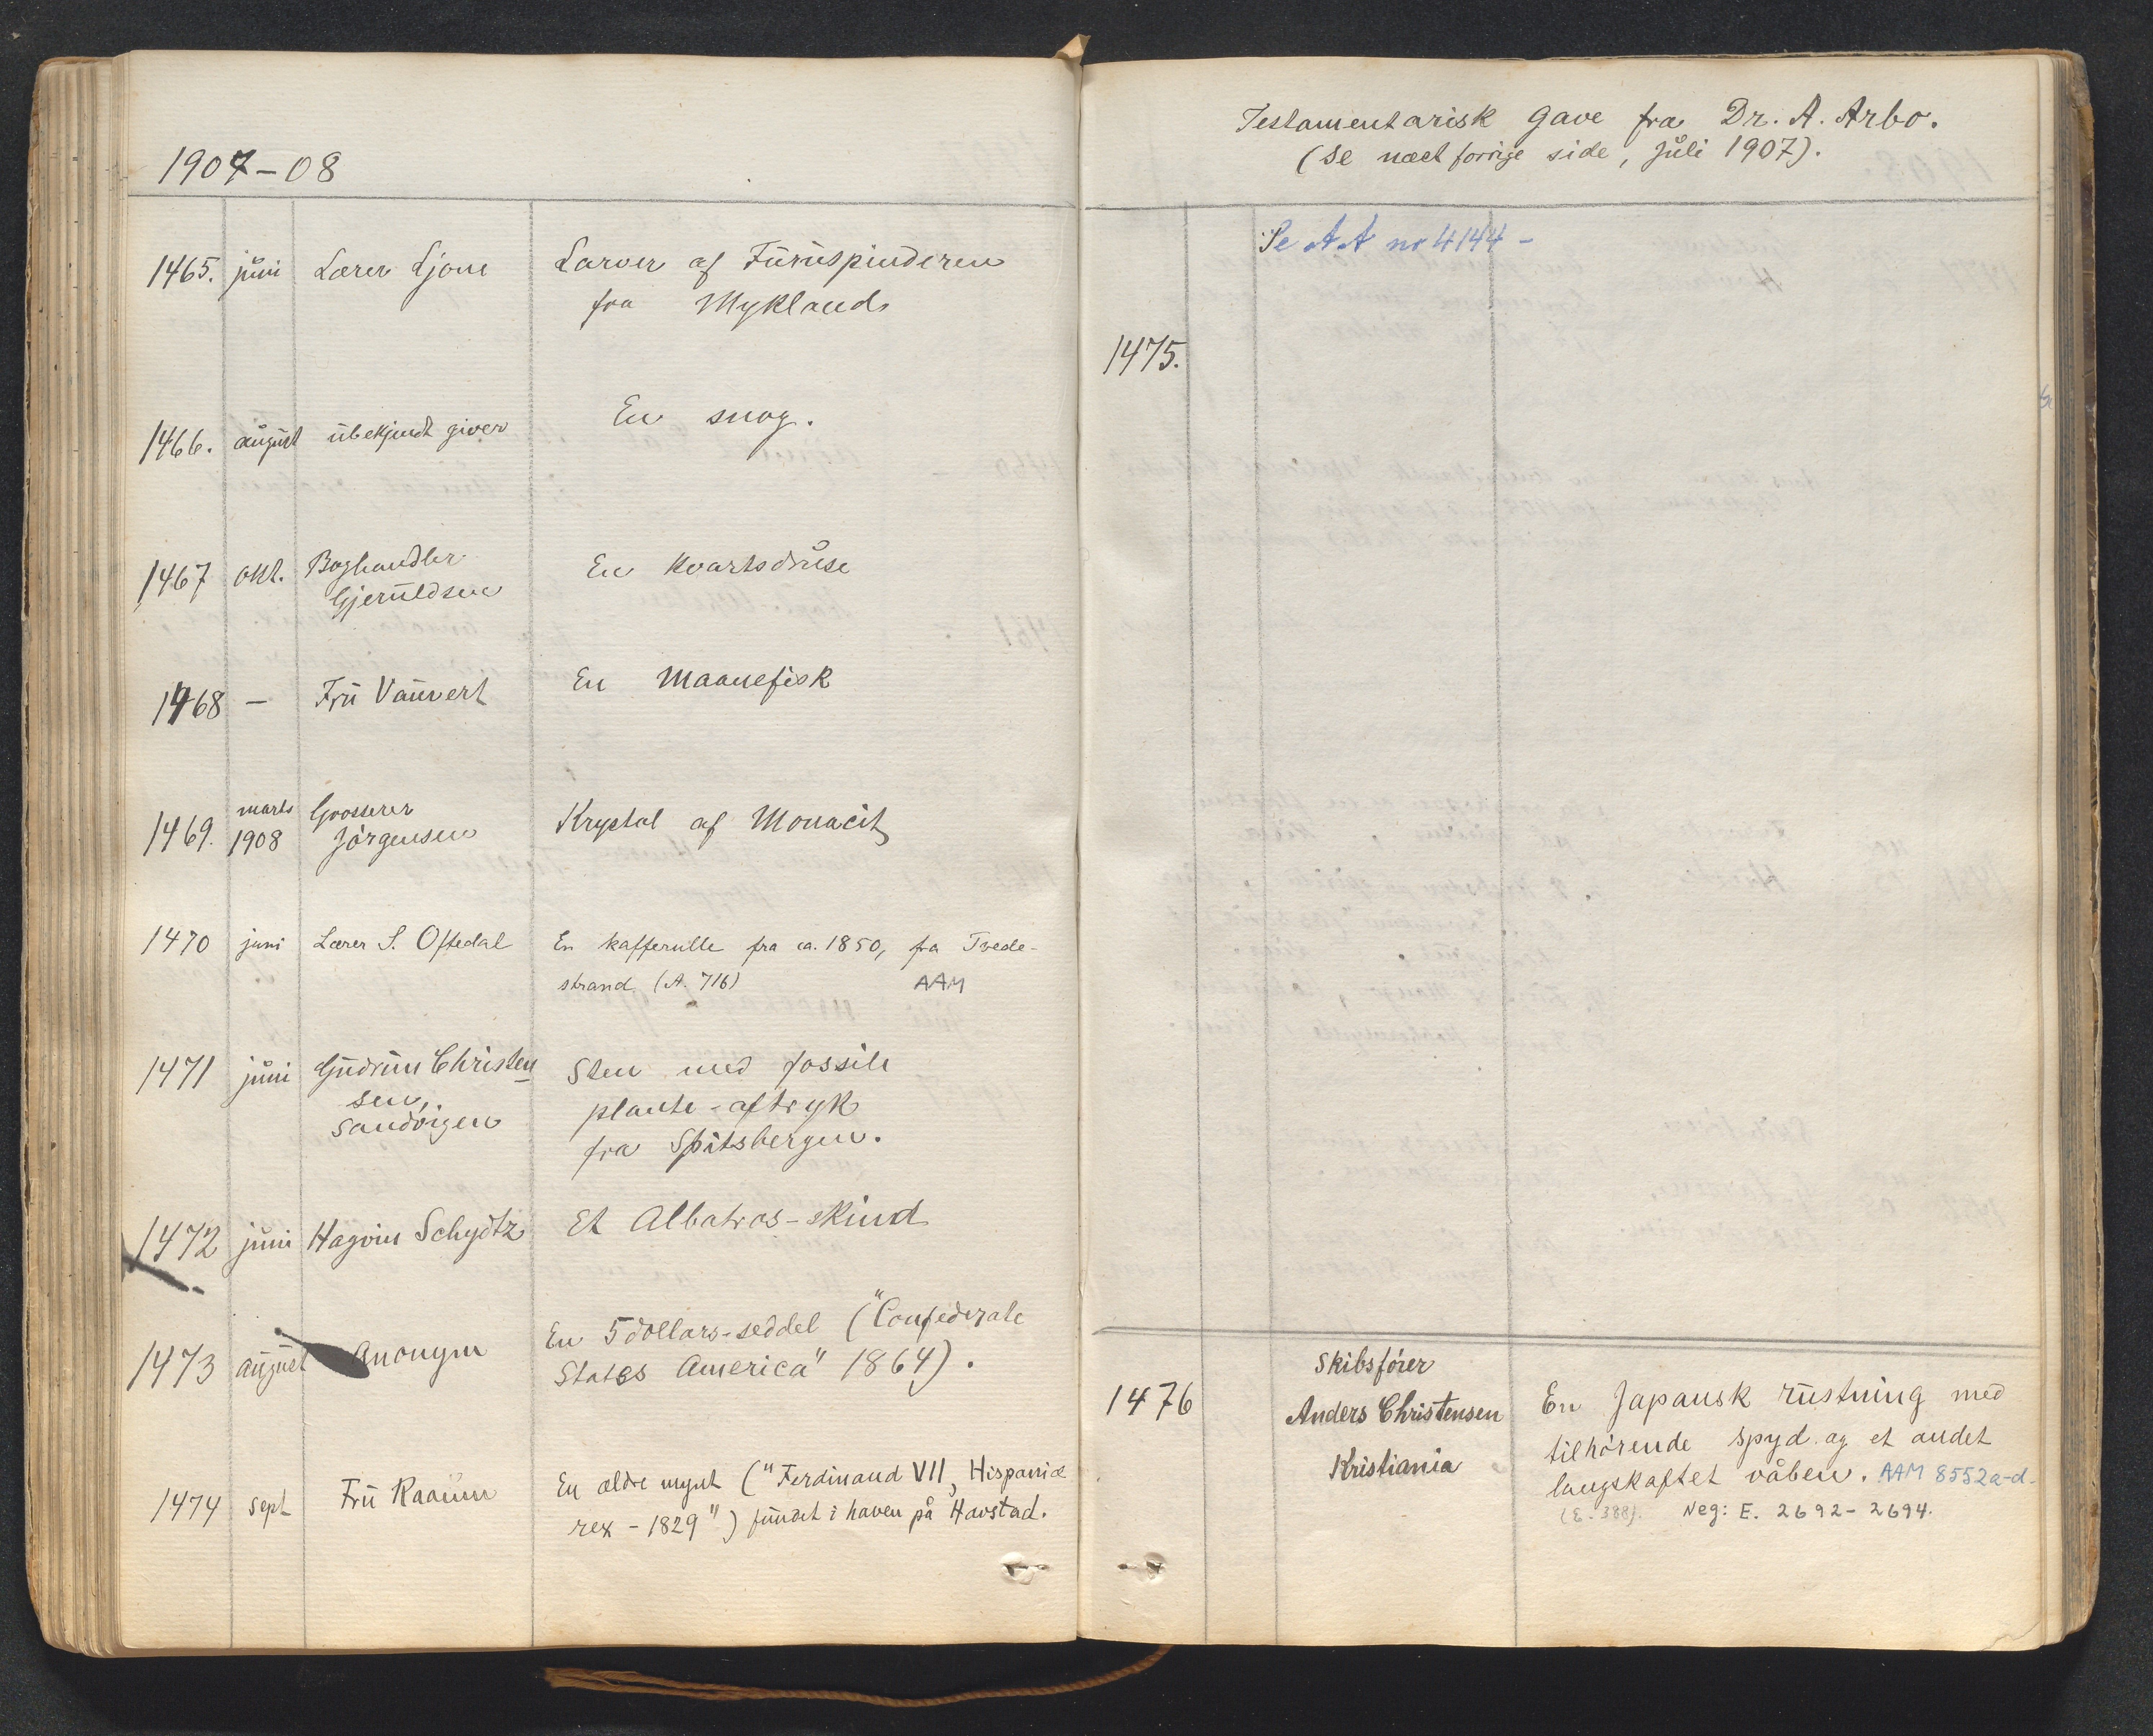 1907-08
1465. juni Lærer Ljone Larver af Furuspinderen
fra Myklands
1466. august ubekjendt giver En snog.
1467 okt. Boghandler En kvartsdruse
Gjeruldsen
1468 - Fru Vauvert En Maanefisk
1469. marts Grosserer Krystal af Monacit
1908 Jörgensen
1470 juni Lærer S. Oftedal En kafferulle fra ca. 1850, fra Tvede-
strand (A. 716) AAM
1471 juni Gudrun Christen Sten med fossile
sen, plante-aftryk
Sandvigen fra Spitsbergen.
1472 juni Hagvin Schydtz Et Albatros-skind
1473 august Anonym En 5 dollars-seddel ("Confederate
States America" 1864).
1474 sept Fru Raaum En ældre mynt ("Ferdinand VII, Hispaniæ
rex - 1829") fundet i haven på Havstad.
Testamentarisk Gave fra Dr. A. Arbo.
(Se næst forrige side, Juli 1907).
Se AA nr 4144 -
1475.
1476 Skibsförer
Anders Christensen
Kristiania
En Japansk rustning med
tilhörende spyd og et andet
langskaftet våben. AAM 8552a-d.
(E. 388). Neg: E. 2692-2694.